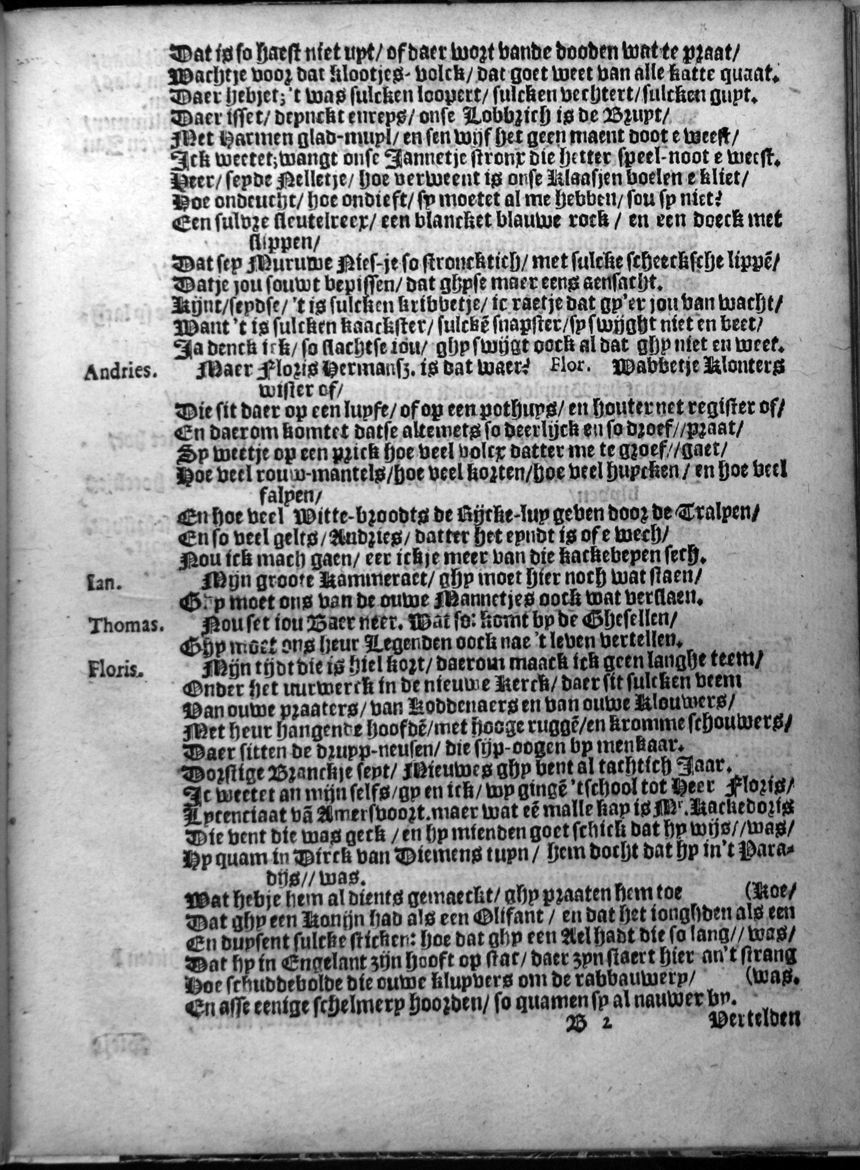 Dat is so haest niet uyt/ of daer wort vande dooden wat te praat/
Wachtje voor dat klootjes-volck/ dat goet weet van alle katte quaat.
Daer hebjet; 't was sulcken loopert/ sulcken vechtert/ sulcken guyt.
Daer isset/ depnckt enreys/ onse Lobbrich is de Bruyt/
Met Harmen glad-muyl/ en sen wijf het geen maent doot e weest/
Ick weetet; wangt onse Jannetje stronx die hetter speel-noot e weest.
Heer/ seyde Nelletje/ hoe verweent is onse Klaasjen boelen e kliet/
Hoe ondeucht/ hoe ondieft/ sy moetet al me hebben/ sou sy niet?
Een sulvre sleutelreex/ een blancket blauwe rock/ en een doeck met
slippen/
Dat sey Muruwe Nies-je so stroncktich/ met sulcke scheecksche lippẽ/
Datje jou souwt bepissen/ dat ghyse maer eens aensacht.
Kijnt/ seydse/ 't is sulcken kribbetje/ ic raetje dat gy'er jou van wacht/
Want 't is sulcken kaackster/ sulckẽ snapster/ sy swijght niet en beet/
Ja denck ick/ so slachtse iou/ ghy swijgt oock al dat ghy niet en weet.
Andries. Maer Floris Hermansz. is dat waer? Flor. Wabbetje Klonters
wister of/
Die sit daer op een luyfe/ of op een pothuys/ en houter net register of/
En daerom komtet datse altemets so deerlijck en so droef//praat/
Sy weetje op een prick hoe veel volcx datter me te groef//gaet/
Hoe veel rouw-mantels/ hoe veel korten/ hoe veel huycken/ en hoe veel
falyen/
En hoe veel Witte-broodts de Rijcke-luy geven door de Tralyen/
En so veel gelts/ Andries/ datter het eyndt is of e wech/
Nou ick mach gaen/ eer ickje meer van die kackebeyen sech.
Ian. Mijn groote Kammeraet/ ghy moet hier noch wat staen/
Ghy moet ons van de ouwe Mannetjes oock wat verslaen.
Thomas. Nou set iou Baer neer. Wat so: komt by de Ghesellen/
Ghy moet ons heur Legenden oock nae 't leven vertellen.
Floris. Mijn tijdt die is hiel kort/ daerom maack ick geen langhe teem/
Onder het uurwerck in de nieuwe Kerck/ daer sit sulcken veem
Van ouwe praaters/ van Koddenaers en van ouwe Klouwers/
Met heur hangende hoofdẽ/ met hooge ruggẽ/ en kromme schouwers/
Daer sitten de druyp-neusen/ die sijp-oogen by menkaar.
Dorstige Branckje seyt/ Nieuwes ghy bent al tachtich Jaar.
Ic weetet an mijn selfs/ gy en ick/ wy gingẽ 'tschool tot Heer Floris/
Lycenciaat vã Amersvoort. maer wat eẽ malle kay is Mr. Kackedoris
Die vent die was geck/ en hy mienden goet schick dat hy wijs//was/
Hy quam in Dirck van Diemens tuyn/ hem docht dat hy in't Para-
dijs//was.
Wat hebje hem al dients gemaeckt/ ghy praaten hem toe (Koe/
Dat ghy een Konijn had als een Olifant/ en dat het ionghden als een
En duysent sulcke sticken: hoe dat ghy een Ael hadt die so lang//was/
Dat hy in Engelant zijn hooft op stac/ daer zyn staert hier an't strang
Hoe schuddebolde die ouwe kluyvers om de rabbauwery/ (was.
En asse eenige schelmery hoorden/ so quamen sy al nauwer by.
B 2 Vertelden